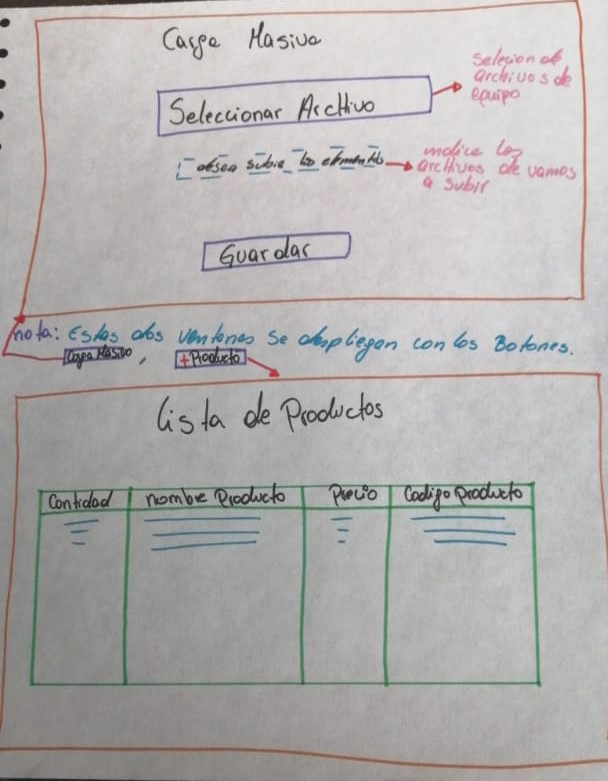 Carga Masiva
Seleccionar Archivo
Selecion de
archivos de
equipo
desea subir los elementos
indica los
archivos de vamos
a subir
Guardar
nota: Estas dos ventanas se despliegan con los Botones.
Carga Masivo, + Producto
Lista de Productos
Cantidad nombre Producto Precio Codigo Producto